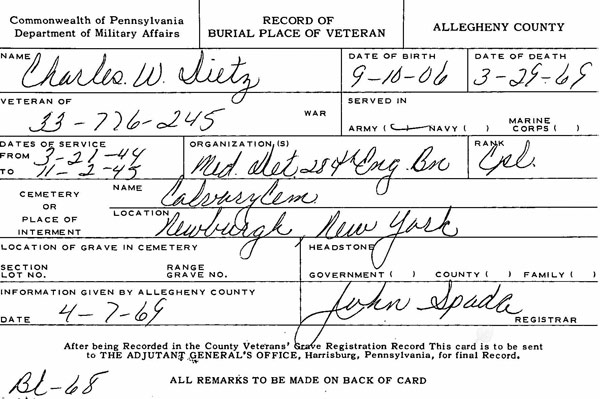 Commonwealth of Pennsylvania
Department of Military Affairs
RECORD OF
BURIAL PLACE OF VETERAN
ALLEGHENY COUNTY
NAME Charles. W. Dietz
DATE OF BIRTH 9-10-06
DATE OF DEATH 3-29-69
VETERAN OF 33-776-245 WAR
SERVED IN
ARMY ( ) NAVY ( ) MARINE CORPS ( )
DATES OF SERVICE
FROM 3-21-44
TO 11-2-45
ORGANIZATION(S) Med. Det. 284th Eng. Bn
RANK Cpl.
CEMETERY
OR
PLACE OF
INTERMENT
NAME Calvary Cem.
LOCATION Newburgh, New York
LOCATION OF GRAVE IN CEMETERY
SECTION RANGE
LOT NO. GRAVE NO.
HEADSTONE
GOVERNMENT ( ) COUNTY ( ) FAMILY ( )
INFORMATION GIVEN BY ALLEGHENY COUNTY
DATE 4-7-69
John Spada
REGISTRAR
After being Recorded in the County Veterans' Grave Registration Record This card is to be sent
to THE ADJUTANT GENERAL'S OFFICE, Harrisburg, Pennsylvania, for final Record.
BL-68
ALL REMARKS TO BE MADE ON BACK OF CARD